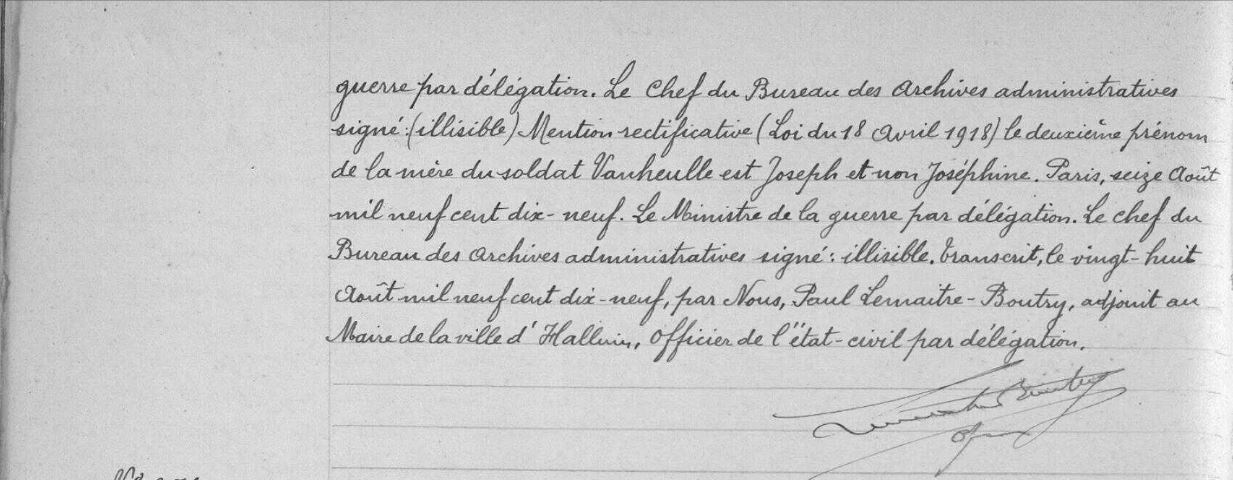 guerre par délégation. Le Chef du Bureau des Archives administratives
signé:(illisible) Mention rectificative (Loi du 18 Avril 1918) le deuxième prénom
de la mère du soldat Vanheulle est Joseph et non Joséphine. Paris, seize Août
mil neuf cent dix-neuf. Le Ministre de la guerre par délégation. Le chef du
Bureau des Archives administratives signé: illisible. Transcrit, le vingt-huit
Août mil neuf cent dix-neuf, par Nous, Paul Lemaitre-Boutry, adjoint au
Maire de la ville d'Halluin, Officier de l'état-civil par délégation.